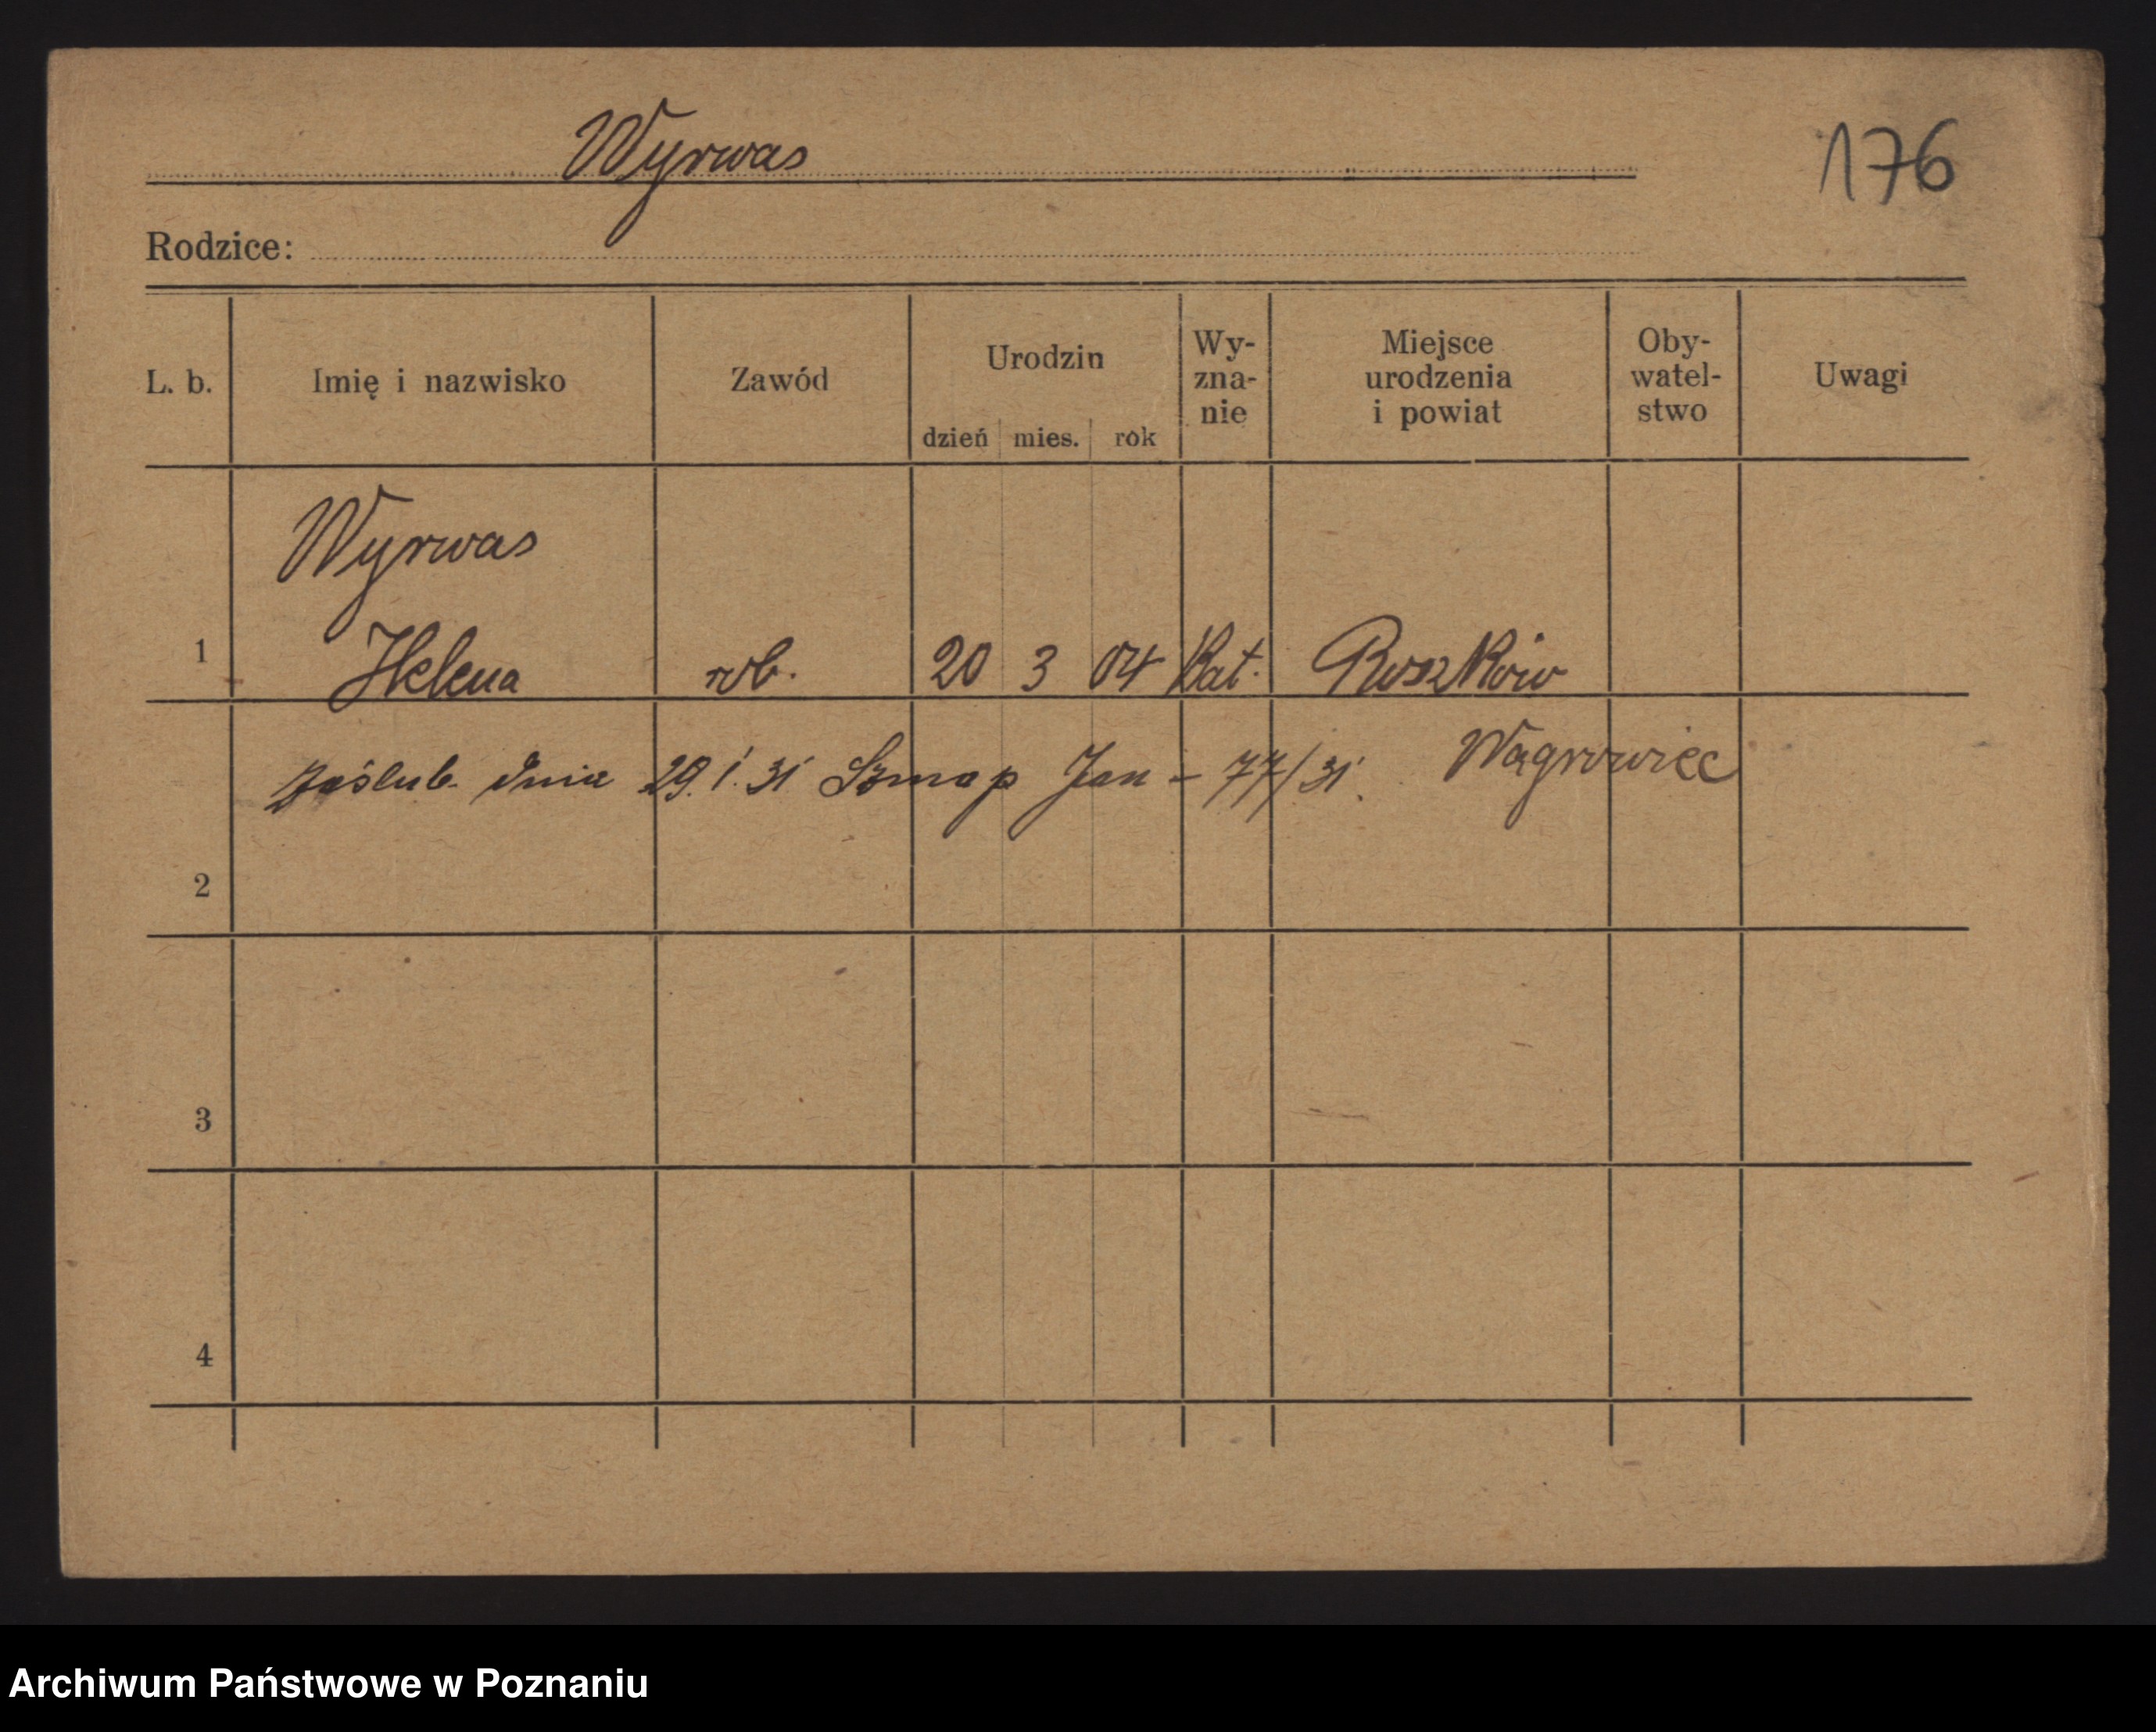 Wyrwas
176
Rodzice:
L. b. Imię i nazwisko Zawód Urodzin dzień mies. rok Wy-zna-nie Miejsce urodzenia i powiat Oby-watel-stwo Uwagi
Wyrwas
1 Helena rob. 20 3 04 Kat. Roszków
Zaślub. dnia 29.1.31 Szmap Jan - 77/31. Wągrowiec
2
3
4
Archiwum Państwowe w Poznaniu